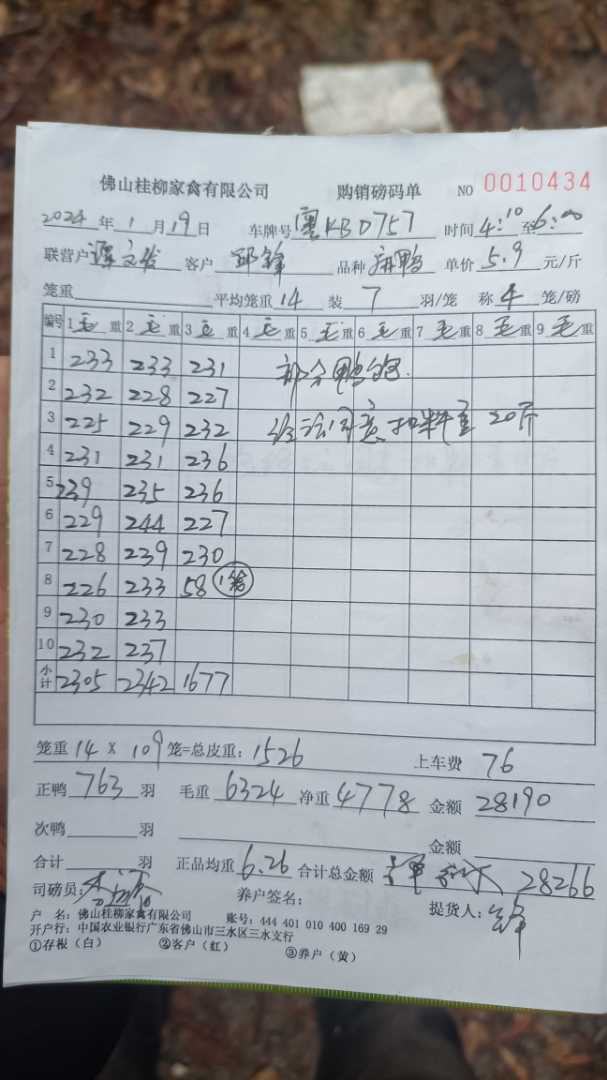 佛山桂柳家禽有限公司 购销磅码单 NO 0010434
2024年 1月19日 车牌号 粤KBD757 时间 4:10至6:00
联营户 谭文发 客户 邱锋 品种 麻鸭 单价 5.9 元/斤
笼重 平均笼重 14 装 7 羽/笼 称 4 笼/磅
编号 1毛重 2毛重 3毛重 4毛重 5毛重 6毛重 7毛重 8毛重 9毛重
1 233 233 231 部分鸭
2 232 228 227
3 225 229 232 扣料重 20斤
4 231 231 236
5 239 235 236
6 229 244 227
7 228 239 230
8 226 233 58 1笼
9 230 233
10 232 237
小计 2305 2342 1677
笼重 14 × 109 笼=总皮重: 1526 上车费 76
正鸭 763 羽 毛重 6324 净重 4778 金额 28190
次鸭 羽 金额
合计 羽 正品均重 6.26 合计总金额 28266
司磅员: 养户签名: 提货人: 锋
户 名: 佛山桂柳家禽有限公司 账号: 444 401 010 400 169 29
开户行: 中国农业银行广东省佛山市三水区三水支行
①存根(白) ②客户(红) ③养户(黄)